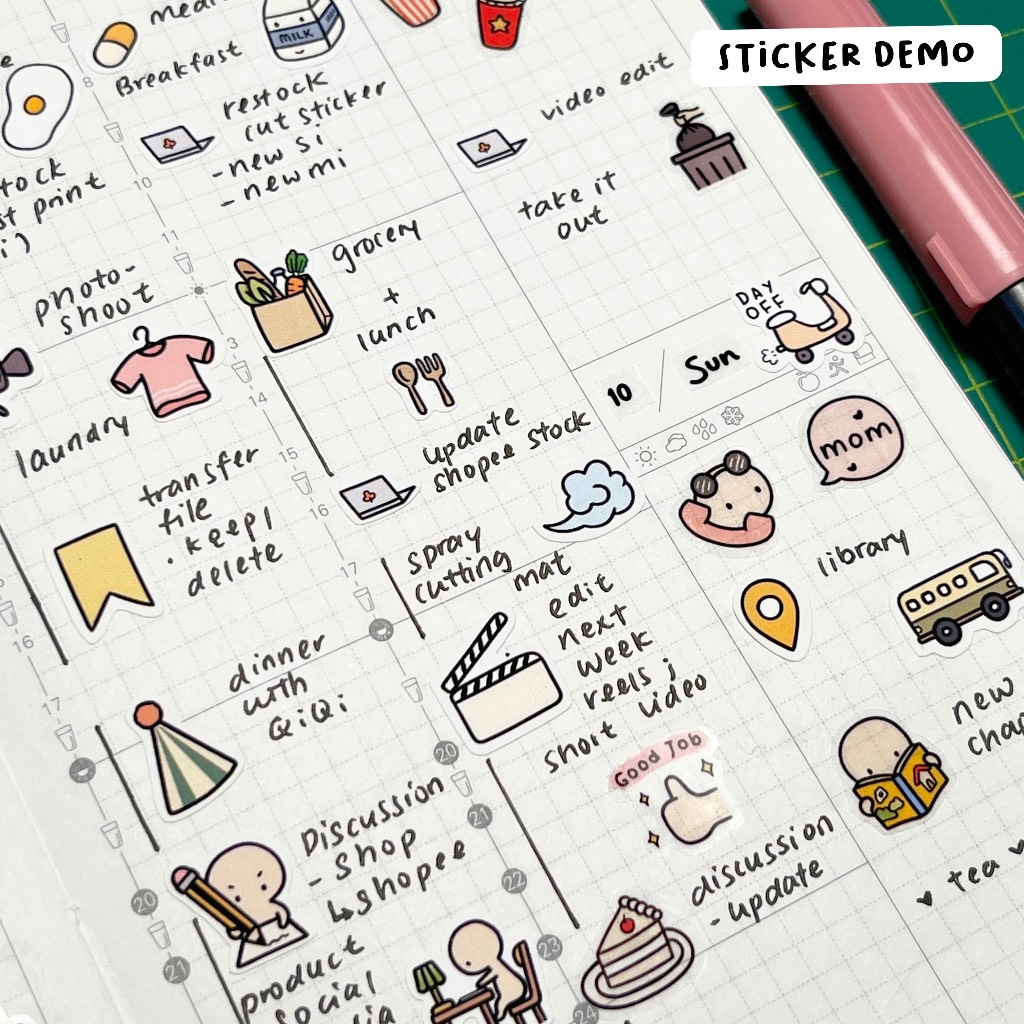 STiCKER DEMO
Breakfast
MILK
restock
cut sticker
- new si
- new mi
video edit
take it
out
tock
st print
i)
photo-
shoot
laundry
grocery
+
lunch
DAY
OFF
10 / Sun
update
shopee stock
mom
transfer
file
• keep /
delete
spray
cutting
mat
library
edit
next
week
reels ;
short video
dinner
with
QiQi
Good Job
new
cha
Discussion
- Shop
↳ shopee
discussion
- update
♥ tea ♥
product
social
dia
8
10
11
3
14
15
16
17
20
21
22
23
24
16
17
20
21